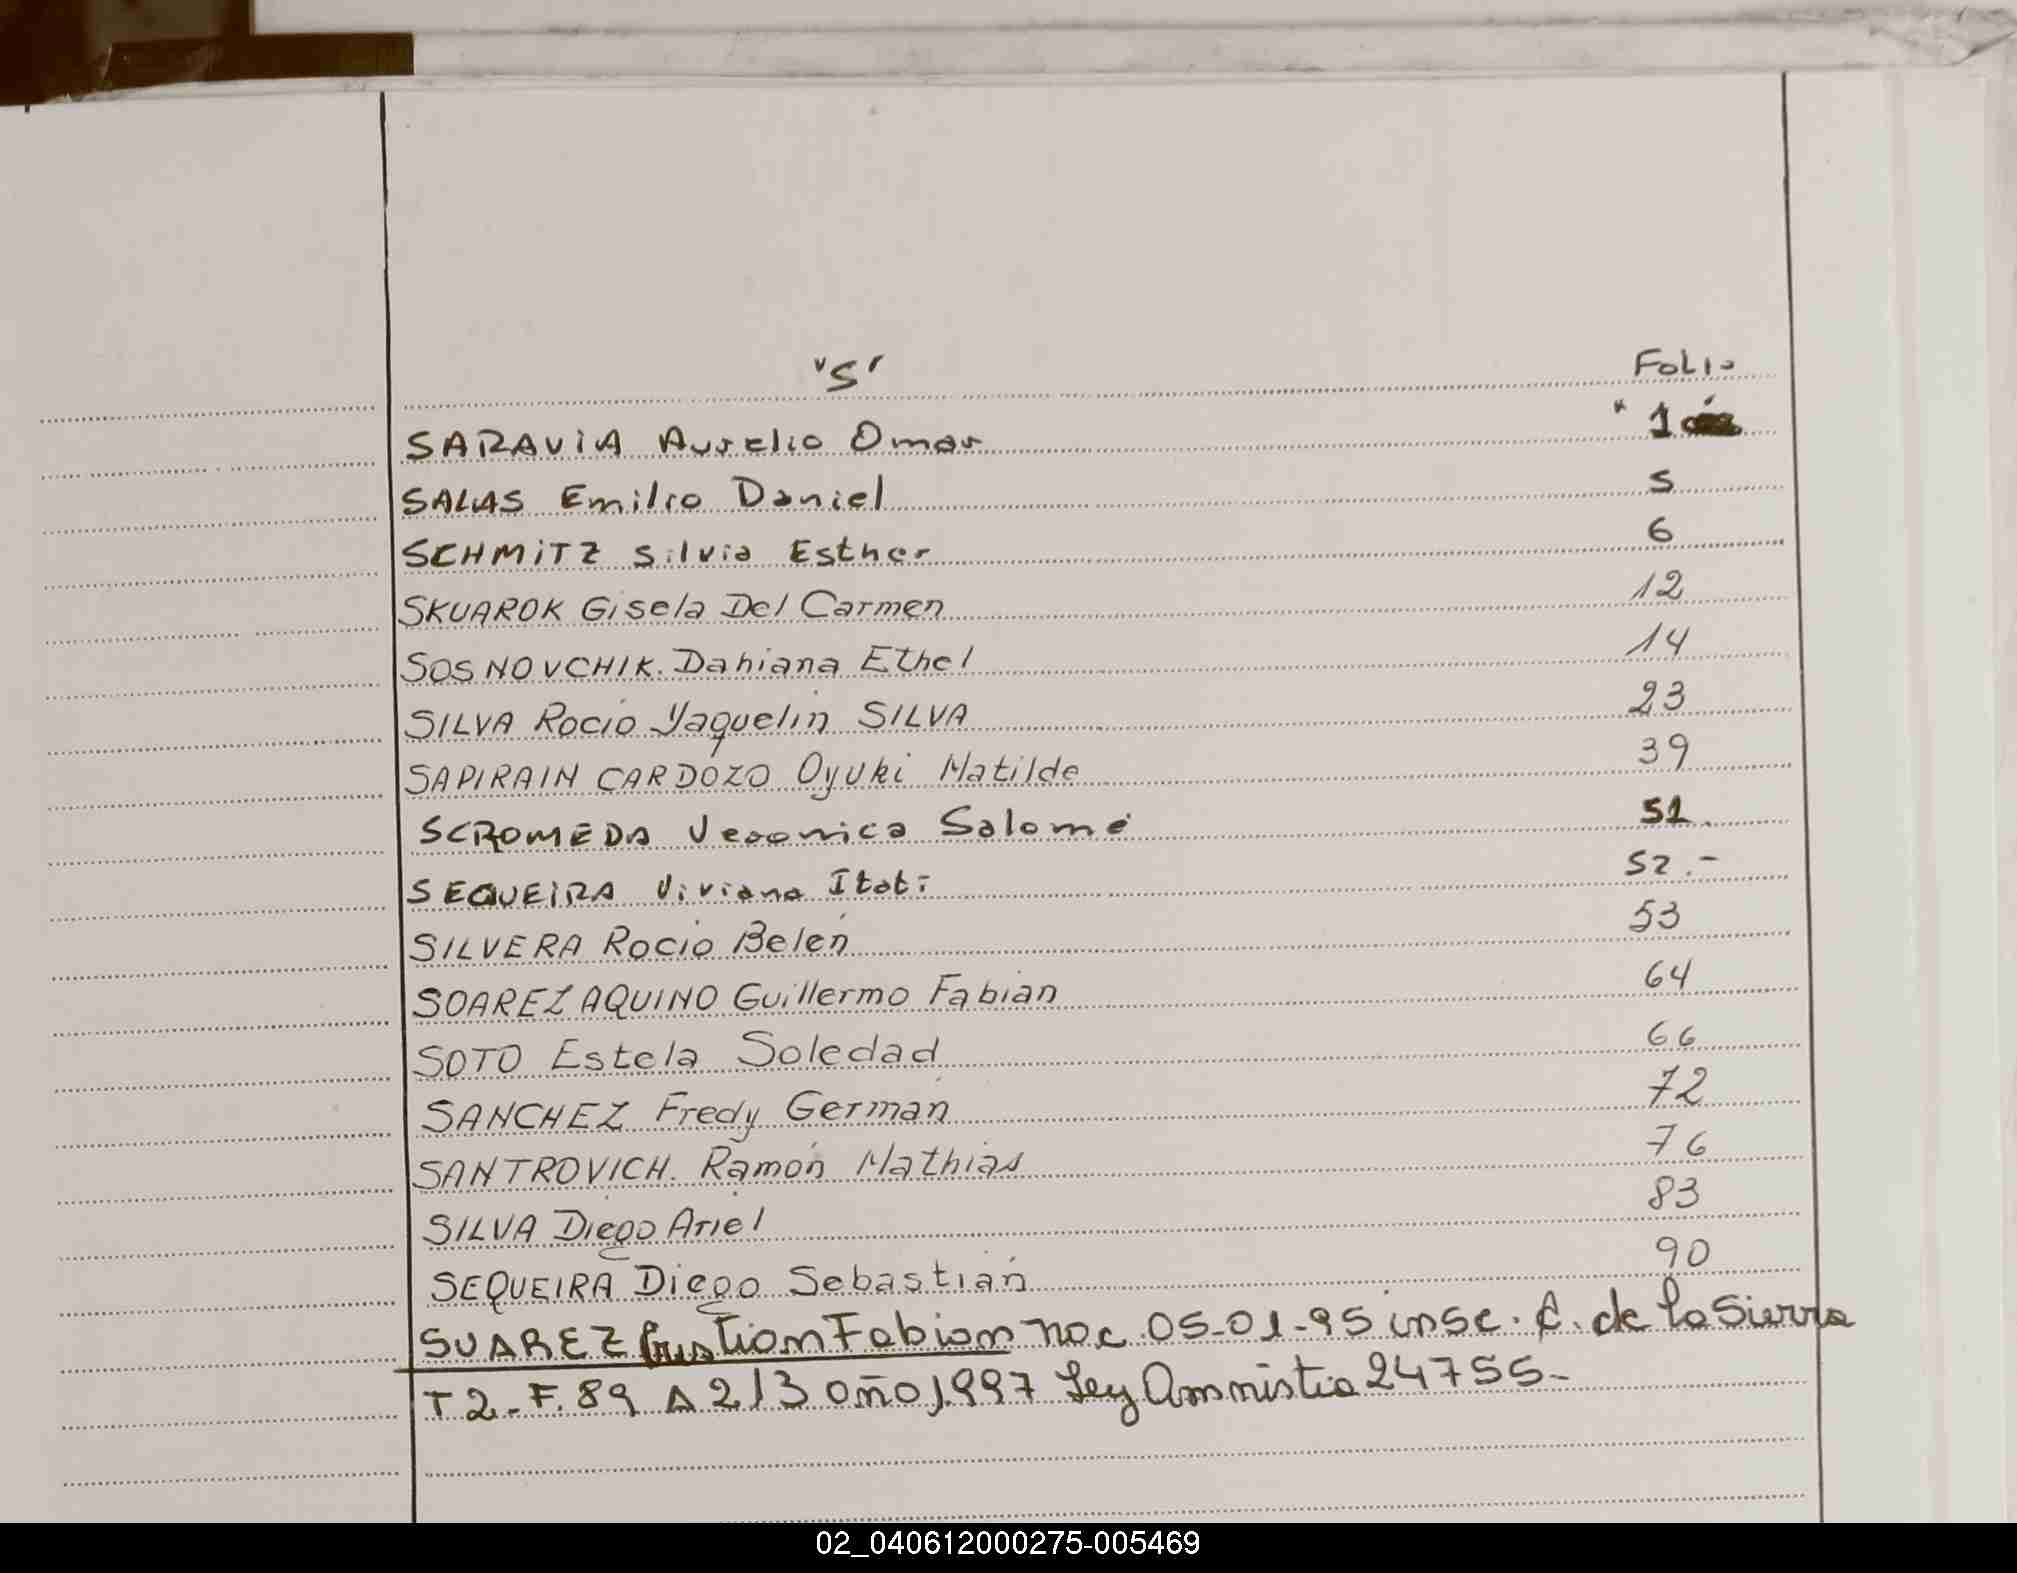 "S" Folio
SARAVIA Aurelio Omar 1
SALAS Emilio Daniel 5
SCHMITZ Silvia Esther 6
SKUAROK Gisela Del Carmen 12
SOSNOVCHIK. Dahiana Ethel 14
SILVA Rocío Yaquelín SILVA 23
SAPIRAIN CARDOZO Oyuki Matilde 39
SCROMEDA Veronica Salomé 51.
SEQUEIRA Viviana Itatí 52.-
SILVERA Rocío Belén 53
SOAREZ AQUINO Guillermo Fabián 64
SOTO Estela Soledad 66
SANCHEZ Fredy Germán 72
SANTROVICH. Ramón Mathías 76
SILVA Diego Ariel 83
SEQUEIRA Diego Sebastián 90
SUAREZ Fabian nac. 05-01-95 insc. C. de la Sierra
T 2-F. 89 A 213 año 1.997 Ley Amnistia 24755-
02_040612000275-005469